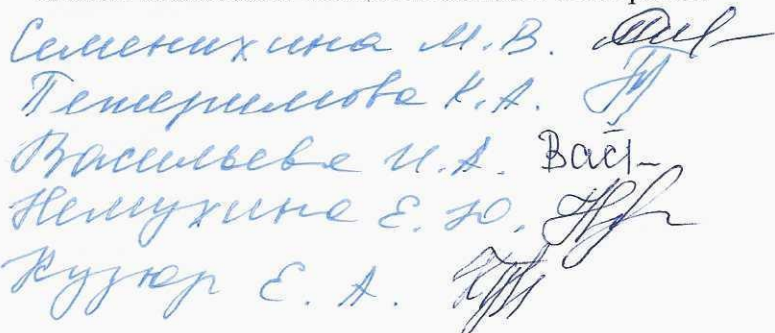 Семенихина М.В.
Печеримова К.А.
Васильева И.А. Вас
Немухина Е.Ю.
Кузюр Е.А.